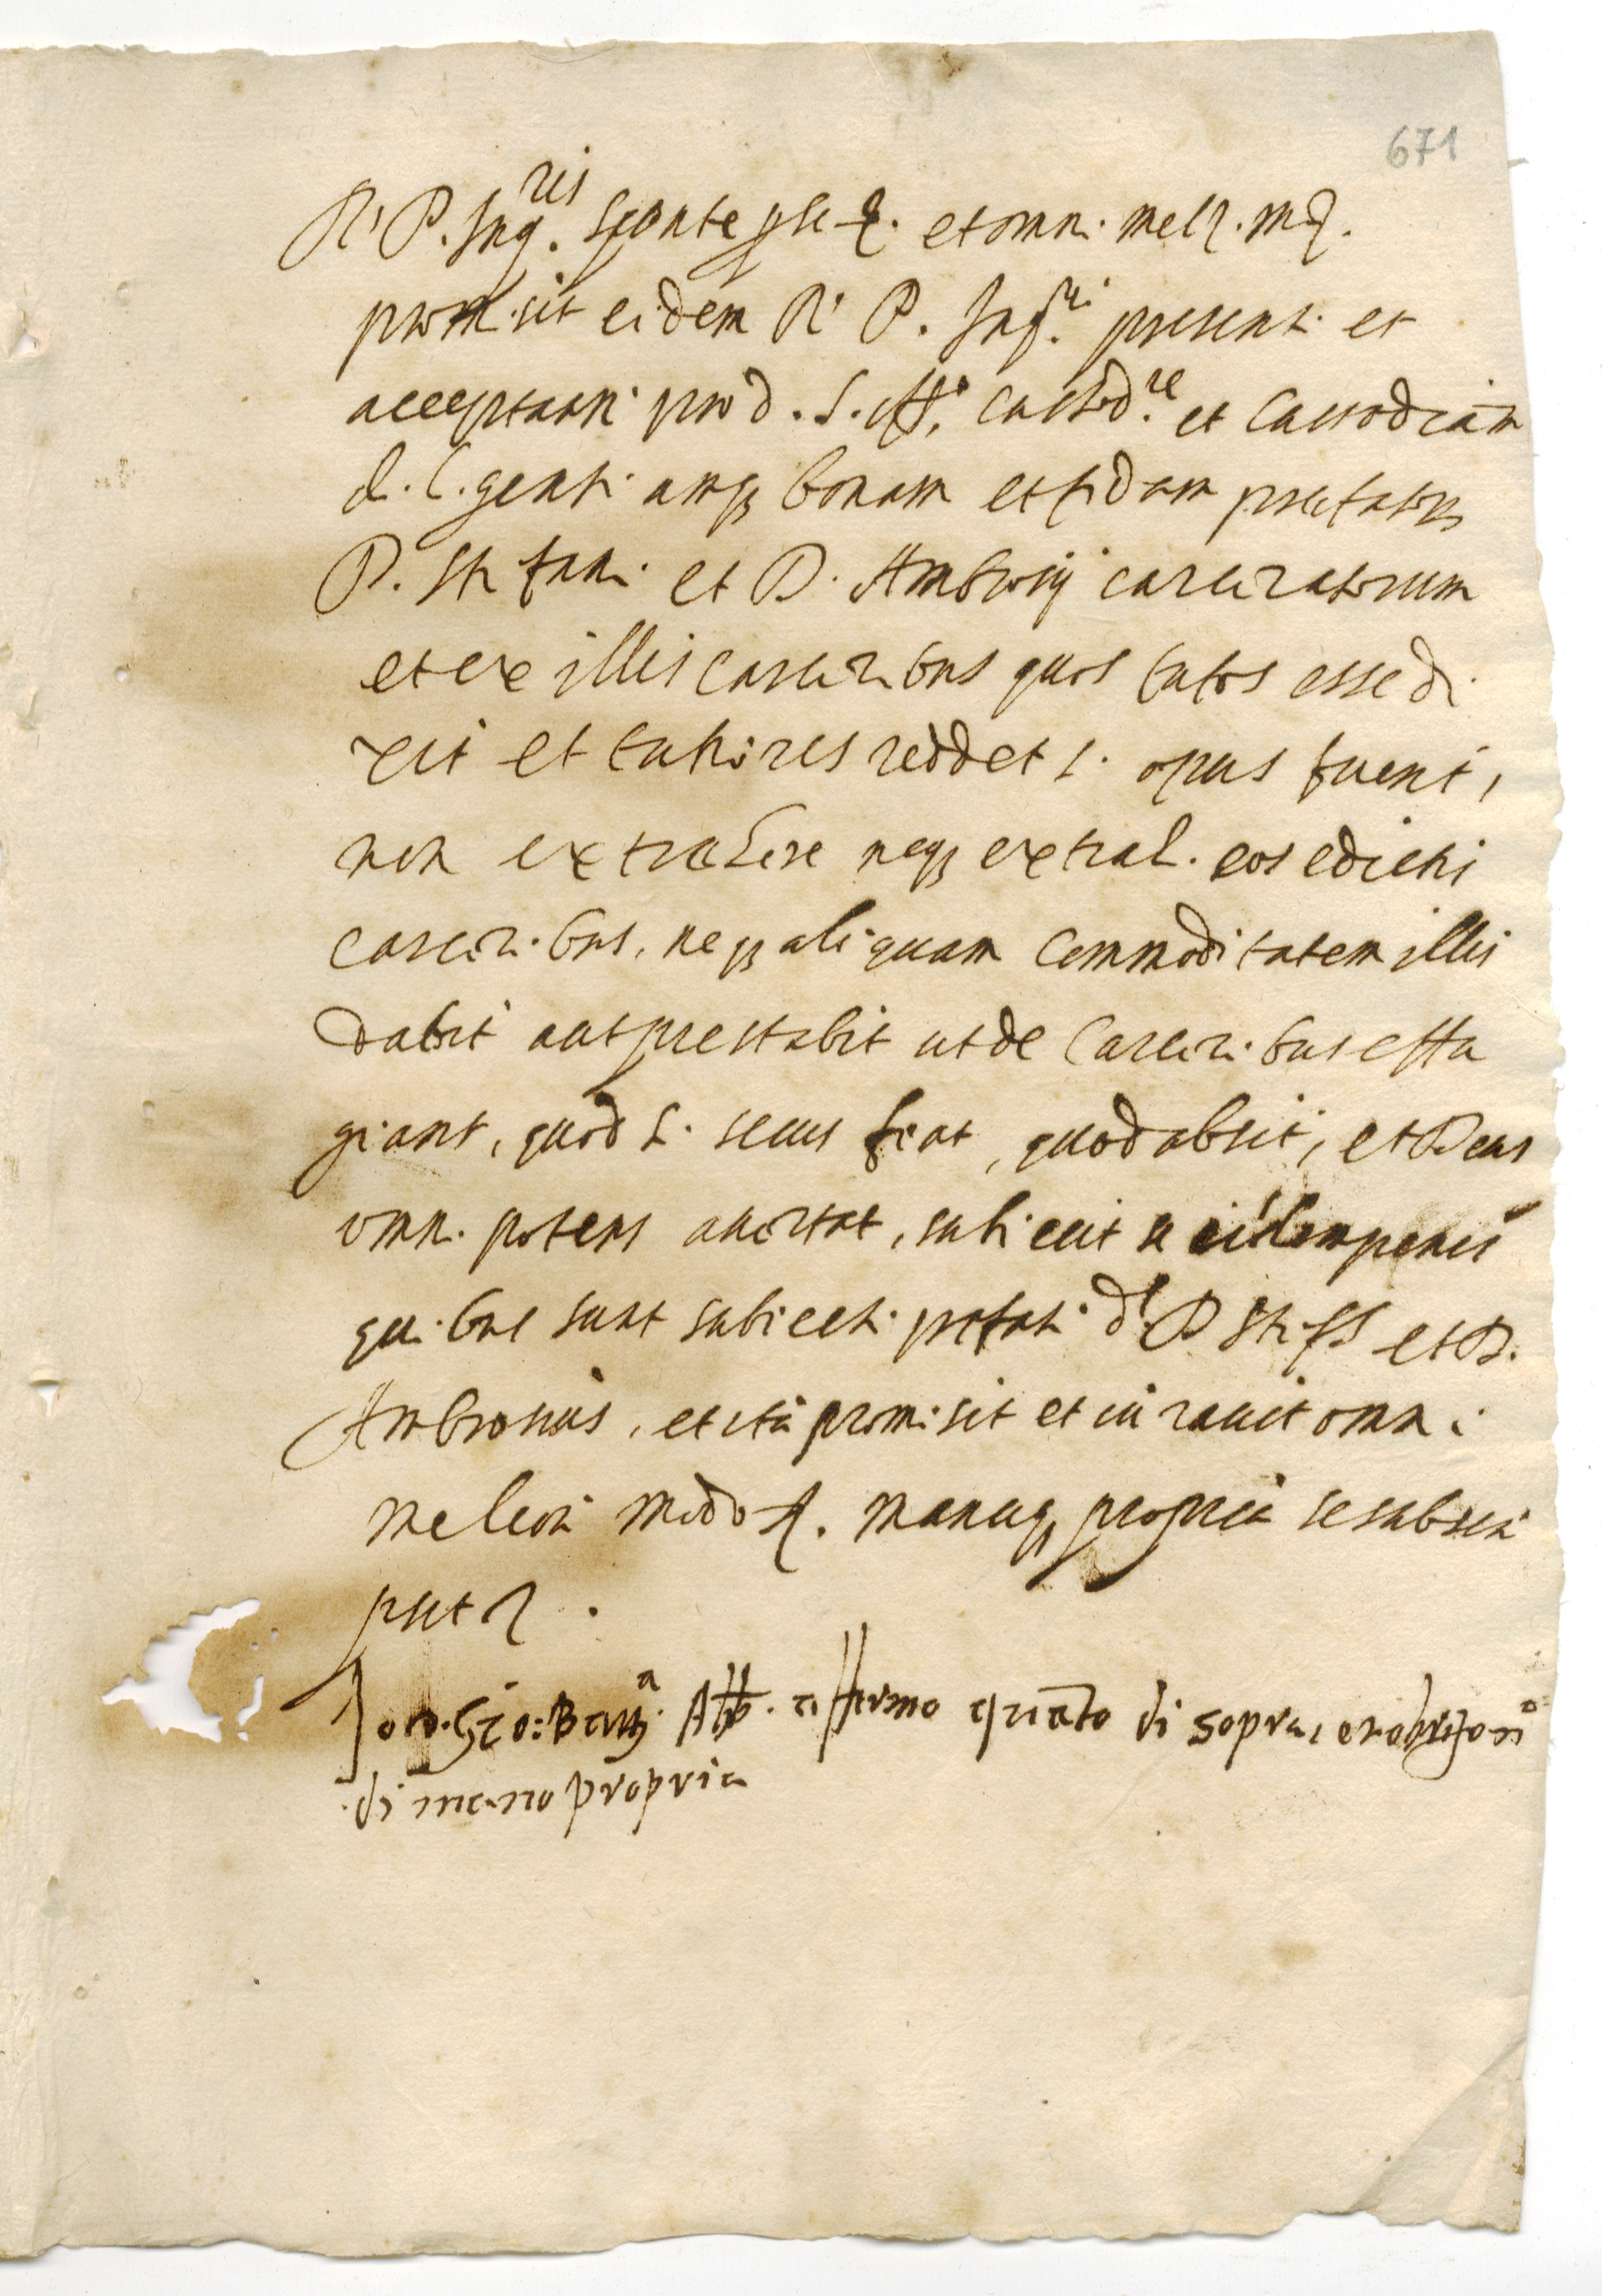 671
R. P. Inq.ris sponte etc. et omni mel. m.
promisit eidem R. P. Inq.ri presenti et
acceptanti pro d. S. off.o custod.re et custodiam
diligenti amq; bonam et fidam prefatorum
D. Stefani et D. Ambrosij carceratorum
et ex illis carceribus quos tutos esse di
xit et tutiores reddet si opus fuerit,
non extrahere neq; extrah. eos e dictis
carceribus, neq; aliquam commoditatem illis
dabit aut prestabit ut de carceribus effu
giant, quod si secus fiat, quod absit, et Deus
omnipotens avertat, subiecit se eisdem penis
quibus sunt subiecti prefati d. D. Stef.s et D.
Ambrosius, et ita promisit et iuravit omni
meliori modo etc. manuq; propria se subscri
psit
Io D. Gio: Batt.a Abb. affermo quanto di sopra,
di mano propria